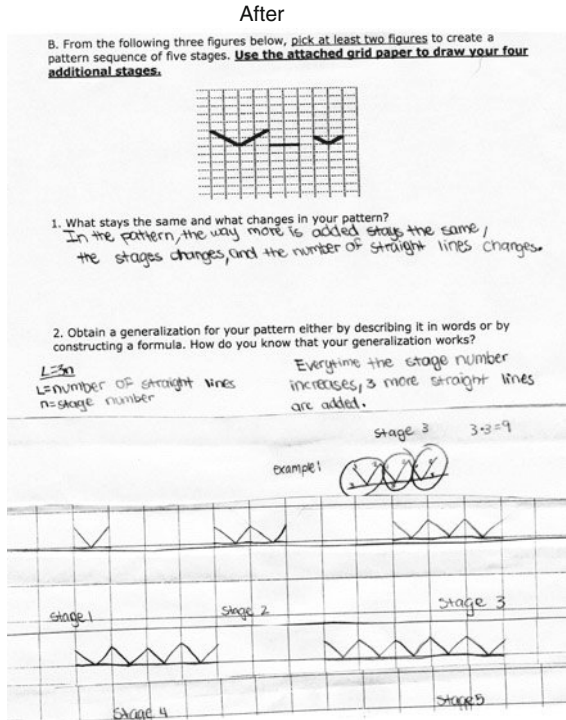 After
B. From the following three figures below, pick at least two figures to create a
pattern sequence of five stages. Use the attached grid paper to draw your four
additional stages.
1. What stays the same and what changes in your pattern?
In the pattern, the way more is added stays the same,
the stages changes, and the number of straight lines changes.
2. Obtain a generalization for your pattern either by describing it in words or by
constructing a formula. How do you know that your generalization works?
L=3n
L=number of straight lines
n=stage number
Everytime the stage number
increases, 3 more straight lines
are added.
stage 3 3·3=9
example:
stage 1 stage 2 stage 3
stage 4 stage 5